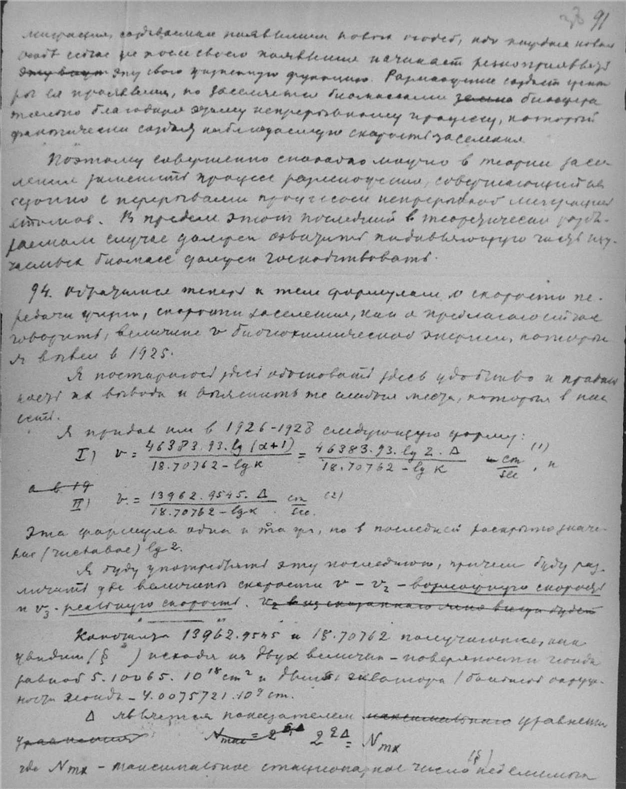 91
миграция, создаваемая появлением новых особей, ибо каждая новая
особь сейчас же после своего появления начинает
эту свою жизненную функцию. Размножение создает
её проявления, но заселяется биомассами биосфера
только благодаря этому непрерывному процессу, который
фактически создал наблюдаемую скорость заселения.
Поэтому совершенно спокойно можно в теории засе-
ления заменить процесс размножения, совершающийся
с перерывами процессом непрерывной миграции
атомов. В пределе этот последний в теоретически разби-
раемом случае должен охватить подавляющую часть изу-
чаемых биомасс должен господствовать.
94. Обратимся теперь к тем формулам о скорости пе-
редачи жизни, скорости заселения, как я предлагаю сейчас
говорить, величине v биогеохимической энергии, которые
я ввел в 1925.
Я постараюсь здесь обосновать здесь удобство и правиль
ность их вывода и выяснить те слабые места, которые в них
есть.
Я придал им в 1926-1928 следующую форму:
I) v = 46383.93.lg (α+1) / 18.70762 - lg K = 46383.93.lg 2.Δ / 18.70762 - lg K cm/sec (1), и
II) v = 13962.9545.Δ / 18.70762 - lg K. cm/sec. (2)
Эта формула одна и та же, но в последней раскрыто значе-
ние (числовое) lg 2.
Я буду употреблять эту последнюю, причем буду раз-
личать две величины скорости v – v₂ –
и v₃ - реальную скорость.
Константы 13962.9545 и 18.70762 получаются, как
увидим (§ ) исходя из двух величин – поверхности геоида
равной 5.10065.10¹⁸ cm² и длины экватора (большой окруж-
ности геоида – 4.0075721.10⁹ cm.
Δ является показателем уравнения
2^Δ = N mx
где N mx – максимальное стационарное число неделимых